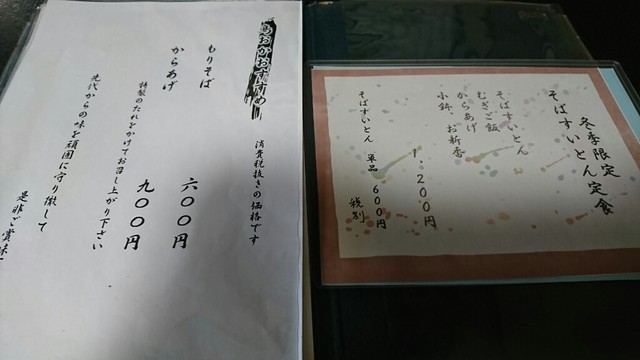 おかおすすめ
消費税抜きの価格です
もりそば 六〇〇円
からあげ 九〇〇円
特製のたれをかけてお召し上がり下さい
先代からの味を頑固に守り徹して
是非ご賞味
冬季限定
そばすいとん定食
そばすいとん
むぎご飯
からあげ
小鉢・お新香
1,200円
そばすいとん 単品 600円
税別